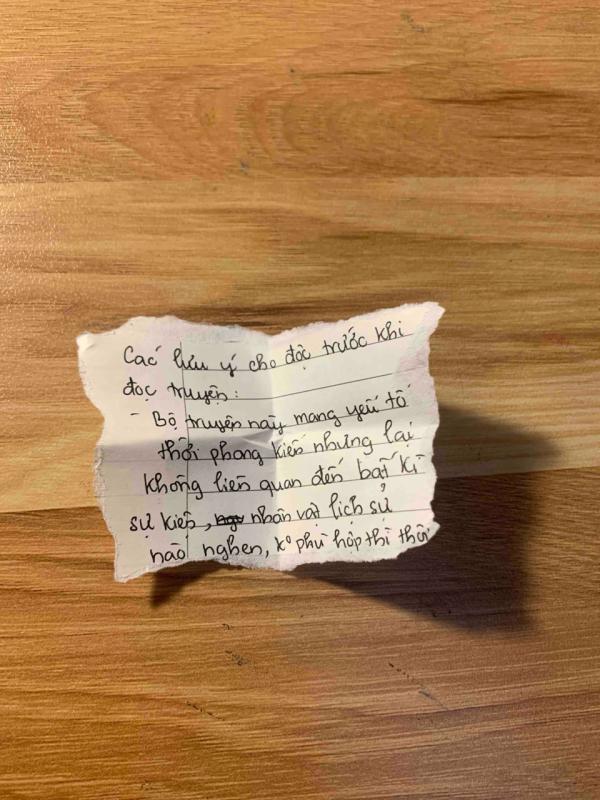 Các lưu ý cho đọc trước khi
đọc truyện:
- Bộ truyện này mang yếu tố
thời phong kiến nhưng lại
không liên quan đến bất kì
sự kiện, nhân vật lịch sử
nào nghen, k° phù hợp thì thôi